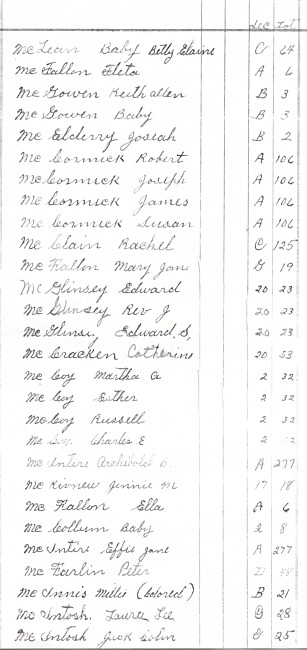 Sec Lot
McLean Baby Betty Elaine C 64
Mc Fallon Fleta A 6
Mc Gowen Keith allen B 3
Mc Gowen Baby B 3
Mc Elderry Josiah B 2
Mc Cormick Robert A 106
Mc Cormick Joseph A 106
Mc Cormick James A 106
Mc Cormick Susan A 106
Mc Clain Rachel C 125
Mc Fallon Mary Jane G 19
Mc Glinsey Edward 20 23
Mc Glinsey Rev J 20 23
Mc Glinsey Edward S, 20 23
Mc Cracken Catherine 20 53
Mc Coy Martha A 2 32
Mc Coy Esther 2 32
Mc Coy Russell 2 32
Mc Coy Charles E 2 32
Mc Intire Archibold A 277
Mc Kinnew Jennie M 17 18
Mc Fallon Ella A 6
Mc Collum Baby 2 8
Mc Intire Effie Jane A 277
Mc Farlin Peter D 48
Mc Innis Millie (colored) B 21
Mc Intosh, Laura Lee 28
Mc Intosh Jack Colin 25